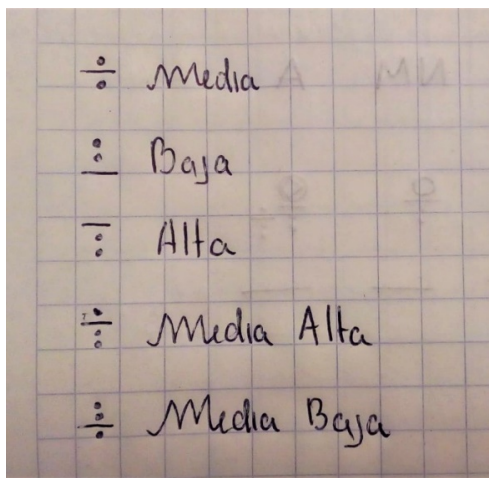 ÷ Media
Baja
Alta
Media Alta
Media Baja